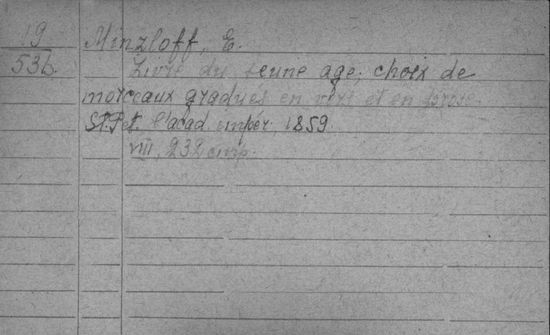 19
536.
Minzloff, E.
Livre du jeune age: choix de
morceaux gradués en vers et en prose.
St.Pet. l'acad. empér, 1859
VIII, 232 стр.